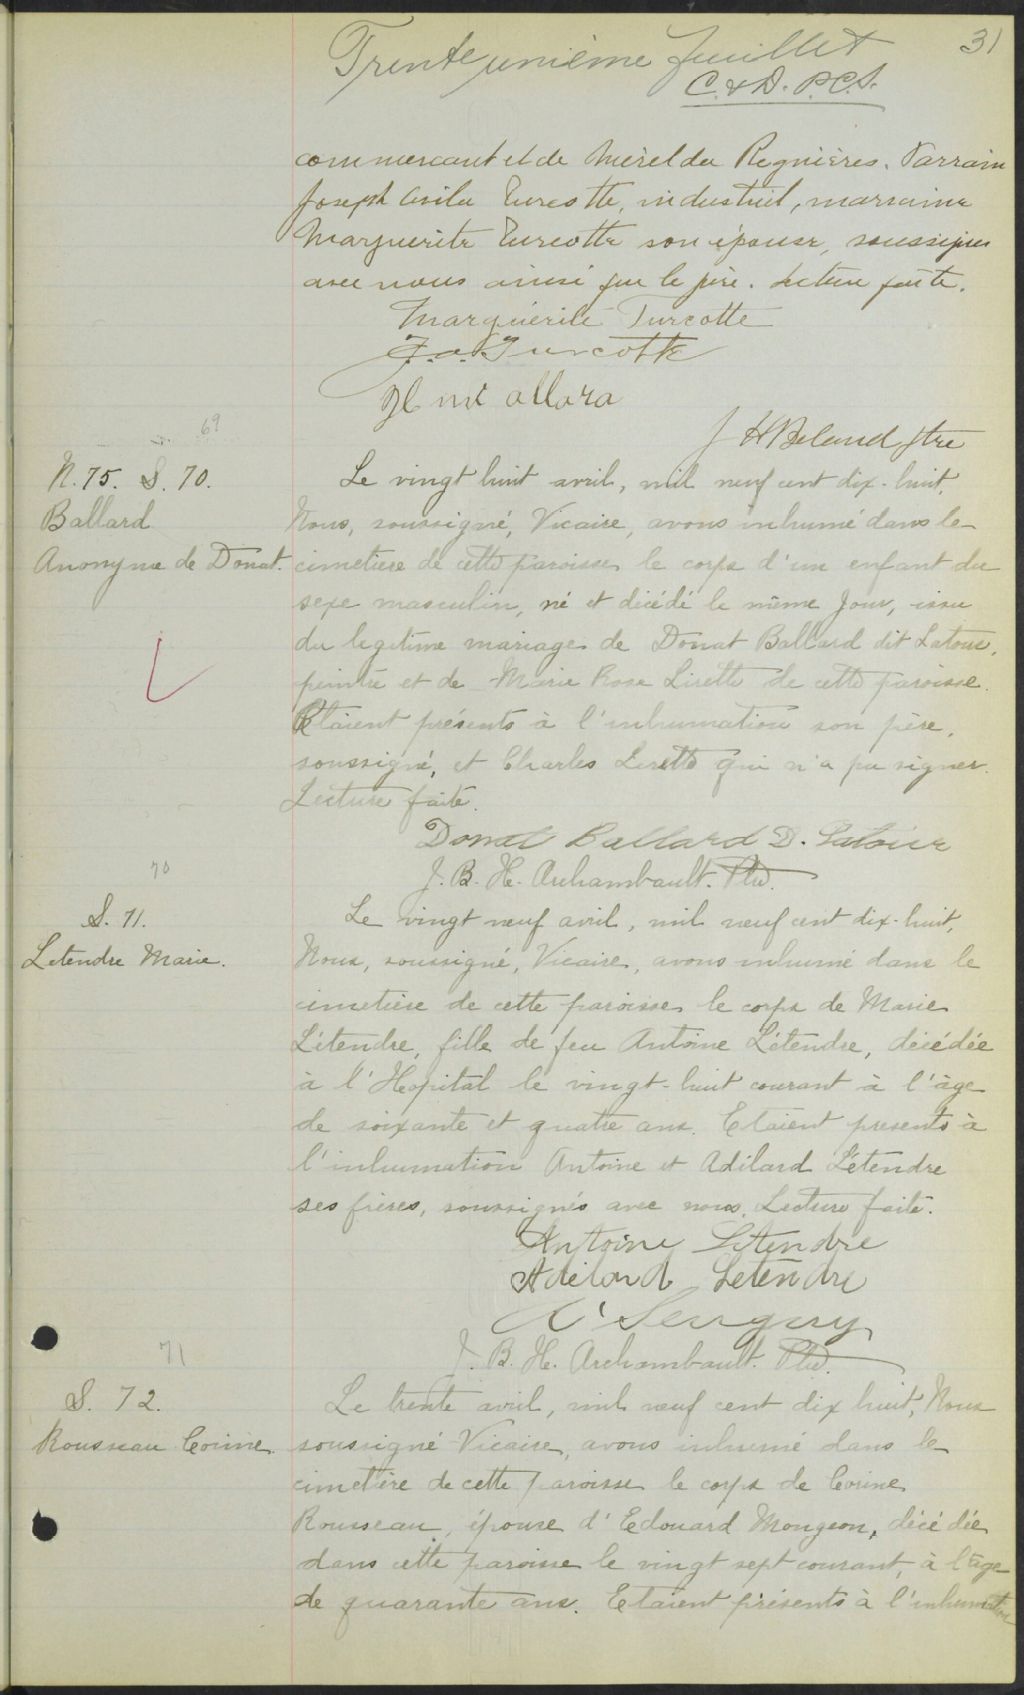 31
Trente unième feuillet
C. & D. P.C.S.
commercant et de Mérelda Regnières. Parrain
Joseph Avila Turcotte, industriel, marraine
Marguerite Turcotte son épouse, soussignés
avec nous ainsi que le père. Lecture faite.
Marguérite Turcotte
J. A. Turcotte
allara
J H Beland ptre
69
N. 75. S. 70.
Ballard
Anonyme de Donat.
Le vingt huit avril, mil neuf cent dix-huit,
Nous, soussigné, Vicaire, avons inhumé dans le
cimetiere de cette paroisse le corps d'un enfant du
sexe masculin, né et décédé le même jour, issu
du legitime mariage de Donat Ballard dit Latour,
peintre et de Marie Rose Lirette de cette paroisse.
Etaient présents à l'inhumation son père,
soussigné, et Charles Lirette qui n'a pu signer.
Lecture faite.
Donat Ballard D. Latour
J. B. H. Archambault. Ptre.
70
S. 71.
Letendre Marie.
Le vingt neuf avril, mil neuf cent dix-huit,
Nous, soussigné, Vicaire, avons inhumé dans le
cimetière de cette paroisse le corps de Marie
Létendre, fille de feu Antoine Létendre, décédée
à l'Hopital le vingt-huit courant à l'âge
de soixante et quatre ans. Etaient presents à
l'inhumation Antoine et Adilard Létendre
ses frères, soussignés avec nous. Lecture faite.
Antoine Letendre
Adelard Letendre
J. B. H. Archambault. Ptre.
71
S. 72.
Rousseau Corine.
Le trente avril, mil neuf cent dix huit, Nous
soussigné Vicaire, avons inhumé dans le
cimetière de cette paroisse le corps de Corine
Rousseau, épouse d'Edouard Mongeon, décédée
dans cette paroisse le vingt sept courant, à l'âge
de quarante ans. Etaient présents à l'inhumation